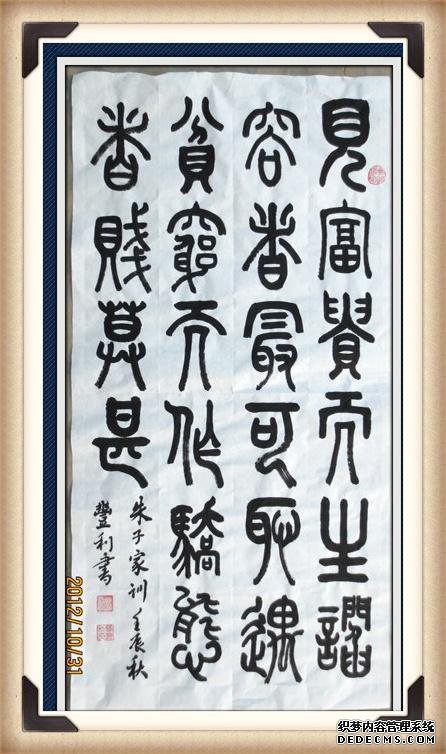 見富貴而生諂
容者最可恥遇
貧窮而作驕態
者賤莫甚
朱子家训 壬辰秋
豐利書
2012/10/31
织梦内容管理系统
DEDECMS.COM